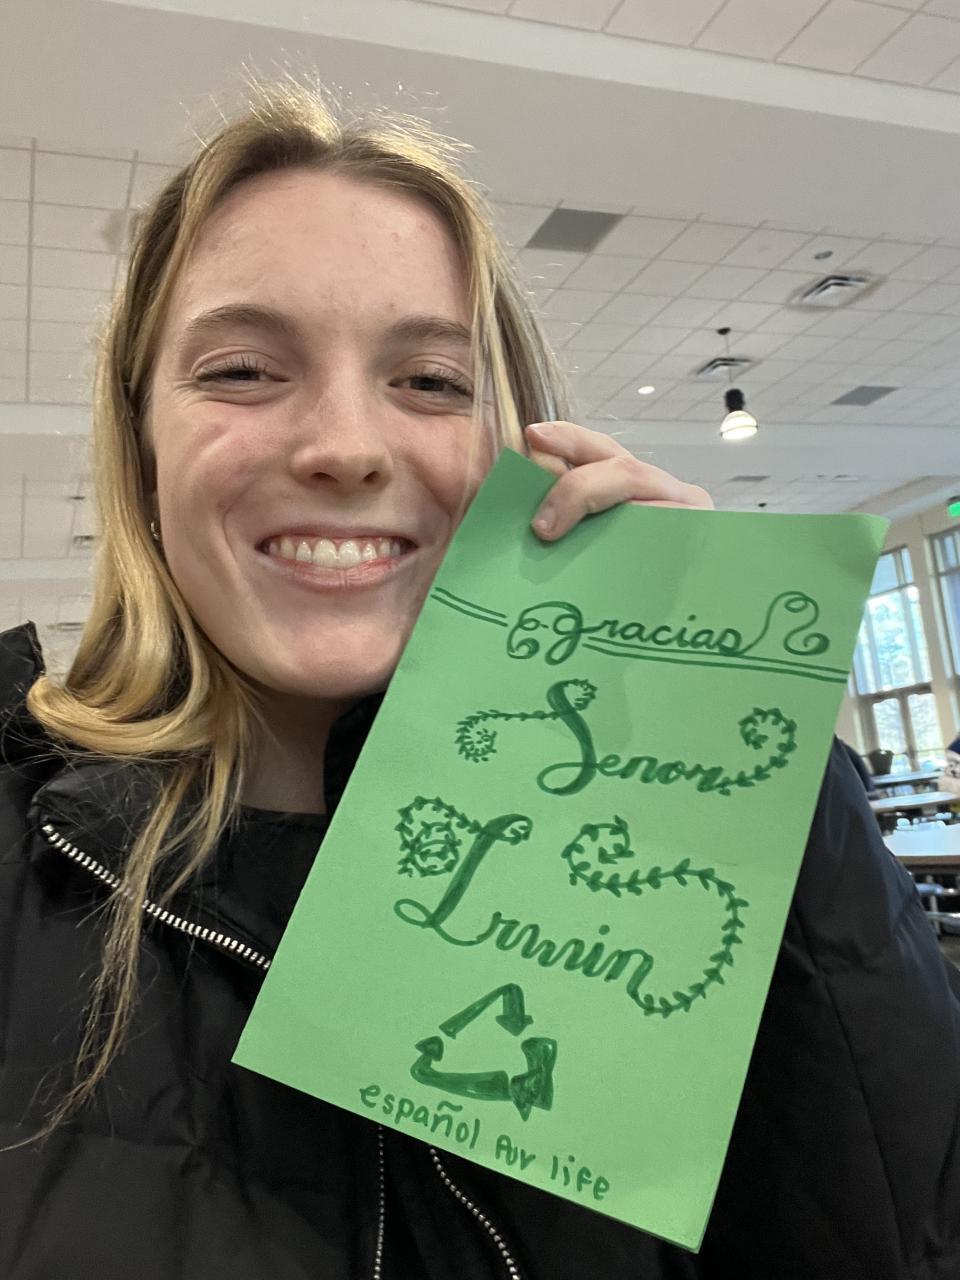 Gracias
Senor
Irwin
español fur life